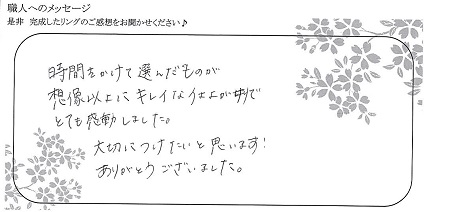 職人へのメッセージ
是非 完成したリングのご感想をお聞かせください♪
時間をかけて選んだものが
想像以上にキレイな仕上がりで
とても感動しました。
大切につけたいと思います!
ありがとうございました。